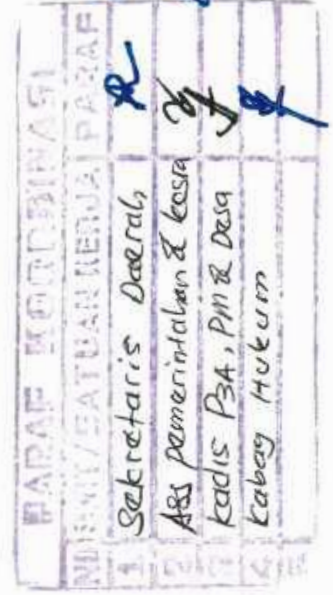 PARAF KOORDINASI
UNIT/SATUAN KERJA PARAF
1. Sekretaris Daerah,
2 Ass pemerintahan & kesra
3 kadis P3A, PM & Desa
4 Kabag Hukum
5